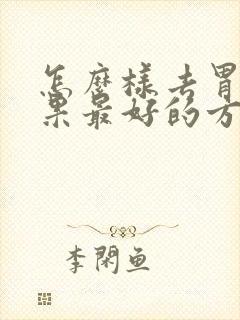 怎麼樣去胃
果最好的方
李閑魚